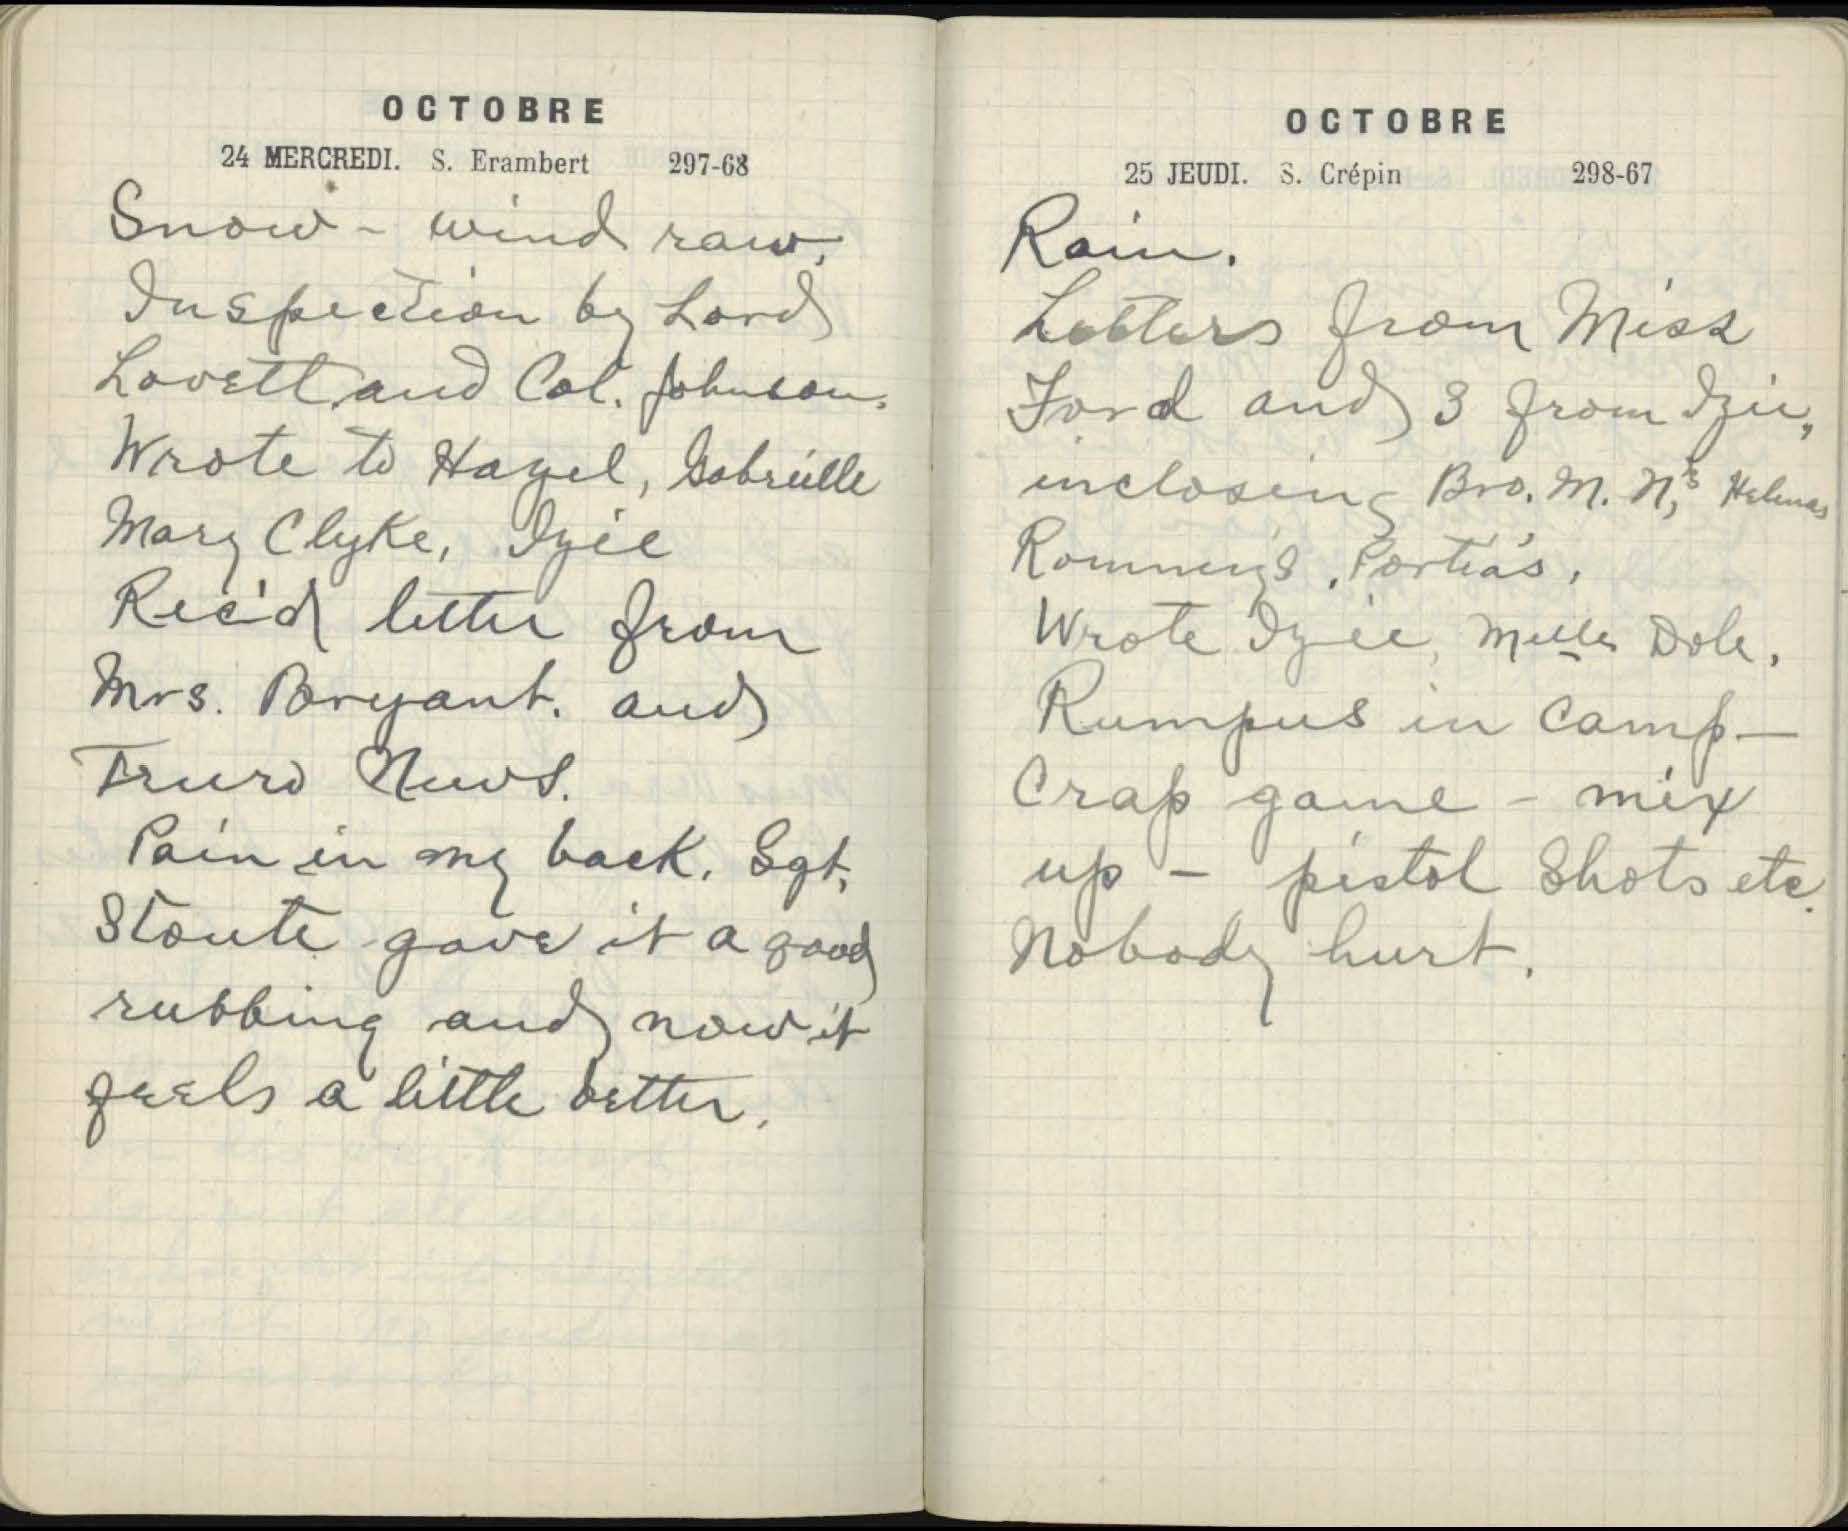 OCTOBRE
24 MERCREDI. S. Erambert 297-68
Snow - wind raw.
Inspection by Lord
Lovett and Col. Johnson.
Wrote to Hazel, Gabrielle
Mary Clyke, Izie
Rec'd letter from
Mrs. Bryant. and
Truro News.
Pain in my back. Sgt.
Stoute gave it a good
rubbing and now it
feels a little better.
OCTOBRE
25 JEUDI. S. Crépin 298-67
Rain.
Letters from Miss
Ford and 3 from Izie,
inclosing Bro. M. N's, Helenas
Rommey's, Portia's.
Wrote Izie, Mlle Dole.
Rumpus in camp—
Crap game - mix
up - pistol shots etc.
Nobody hurt.